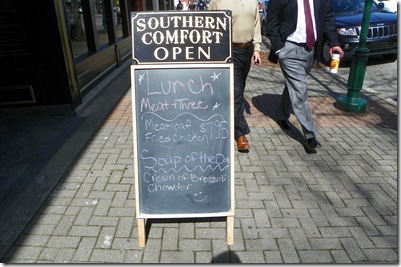 SOUTHERN
COMFORT
OPEN
Lunch
Meat + Three
Meatloaf $7.95
Fried Chicken
Soup of the Day
Cream of Broccoli
Chowder